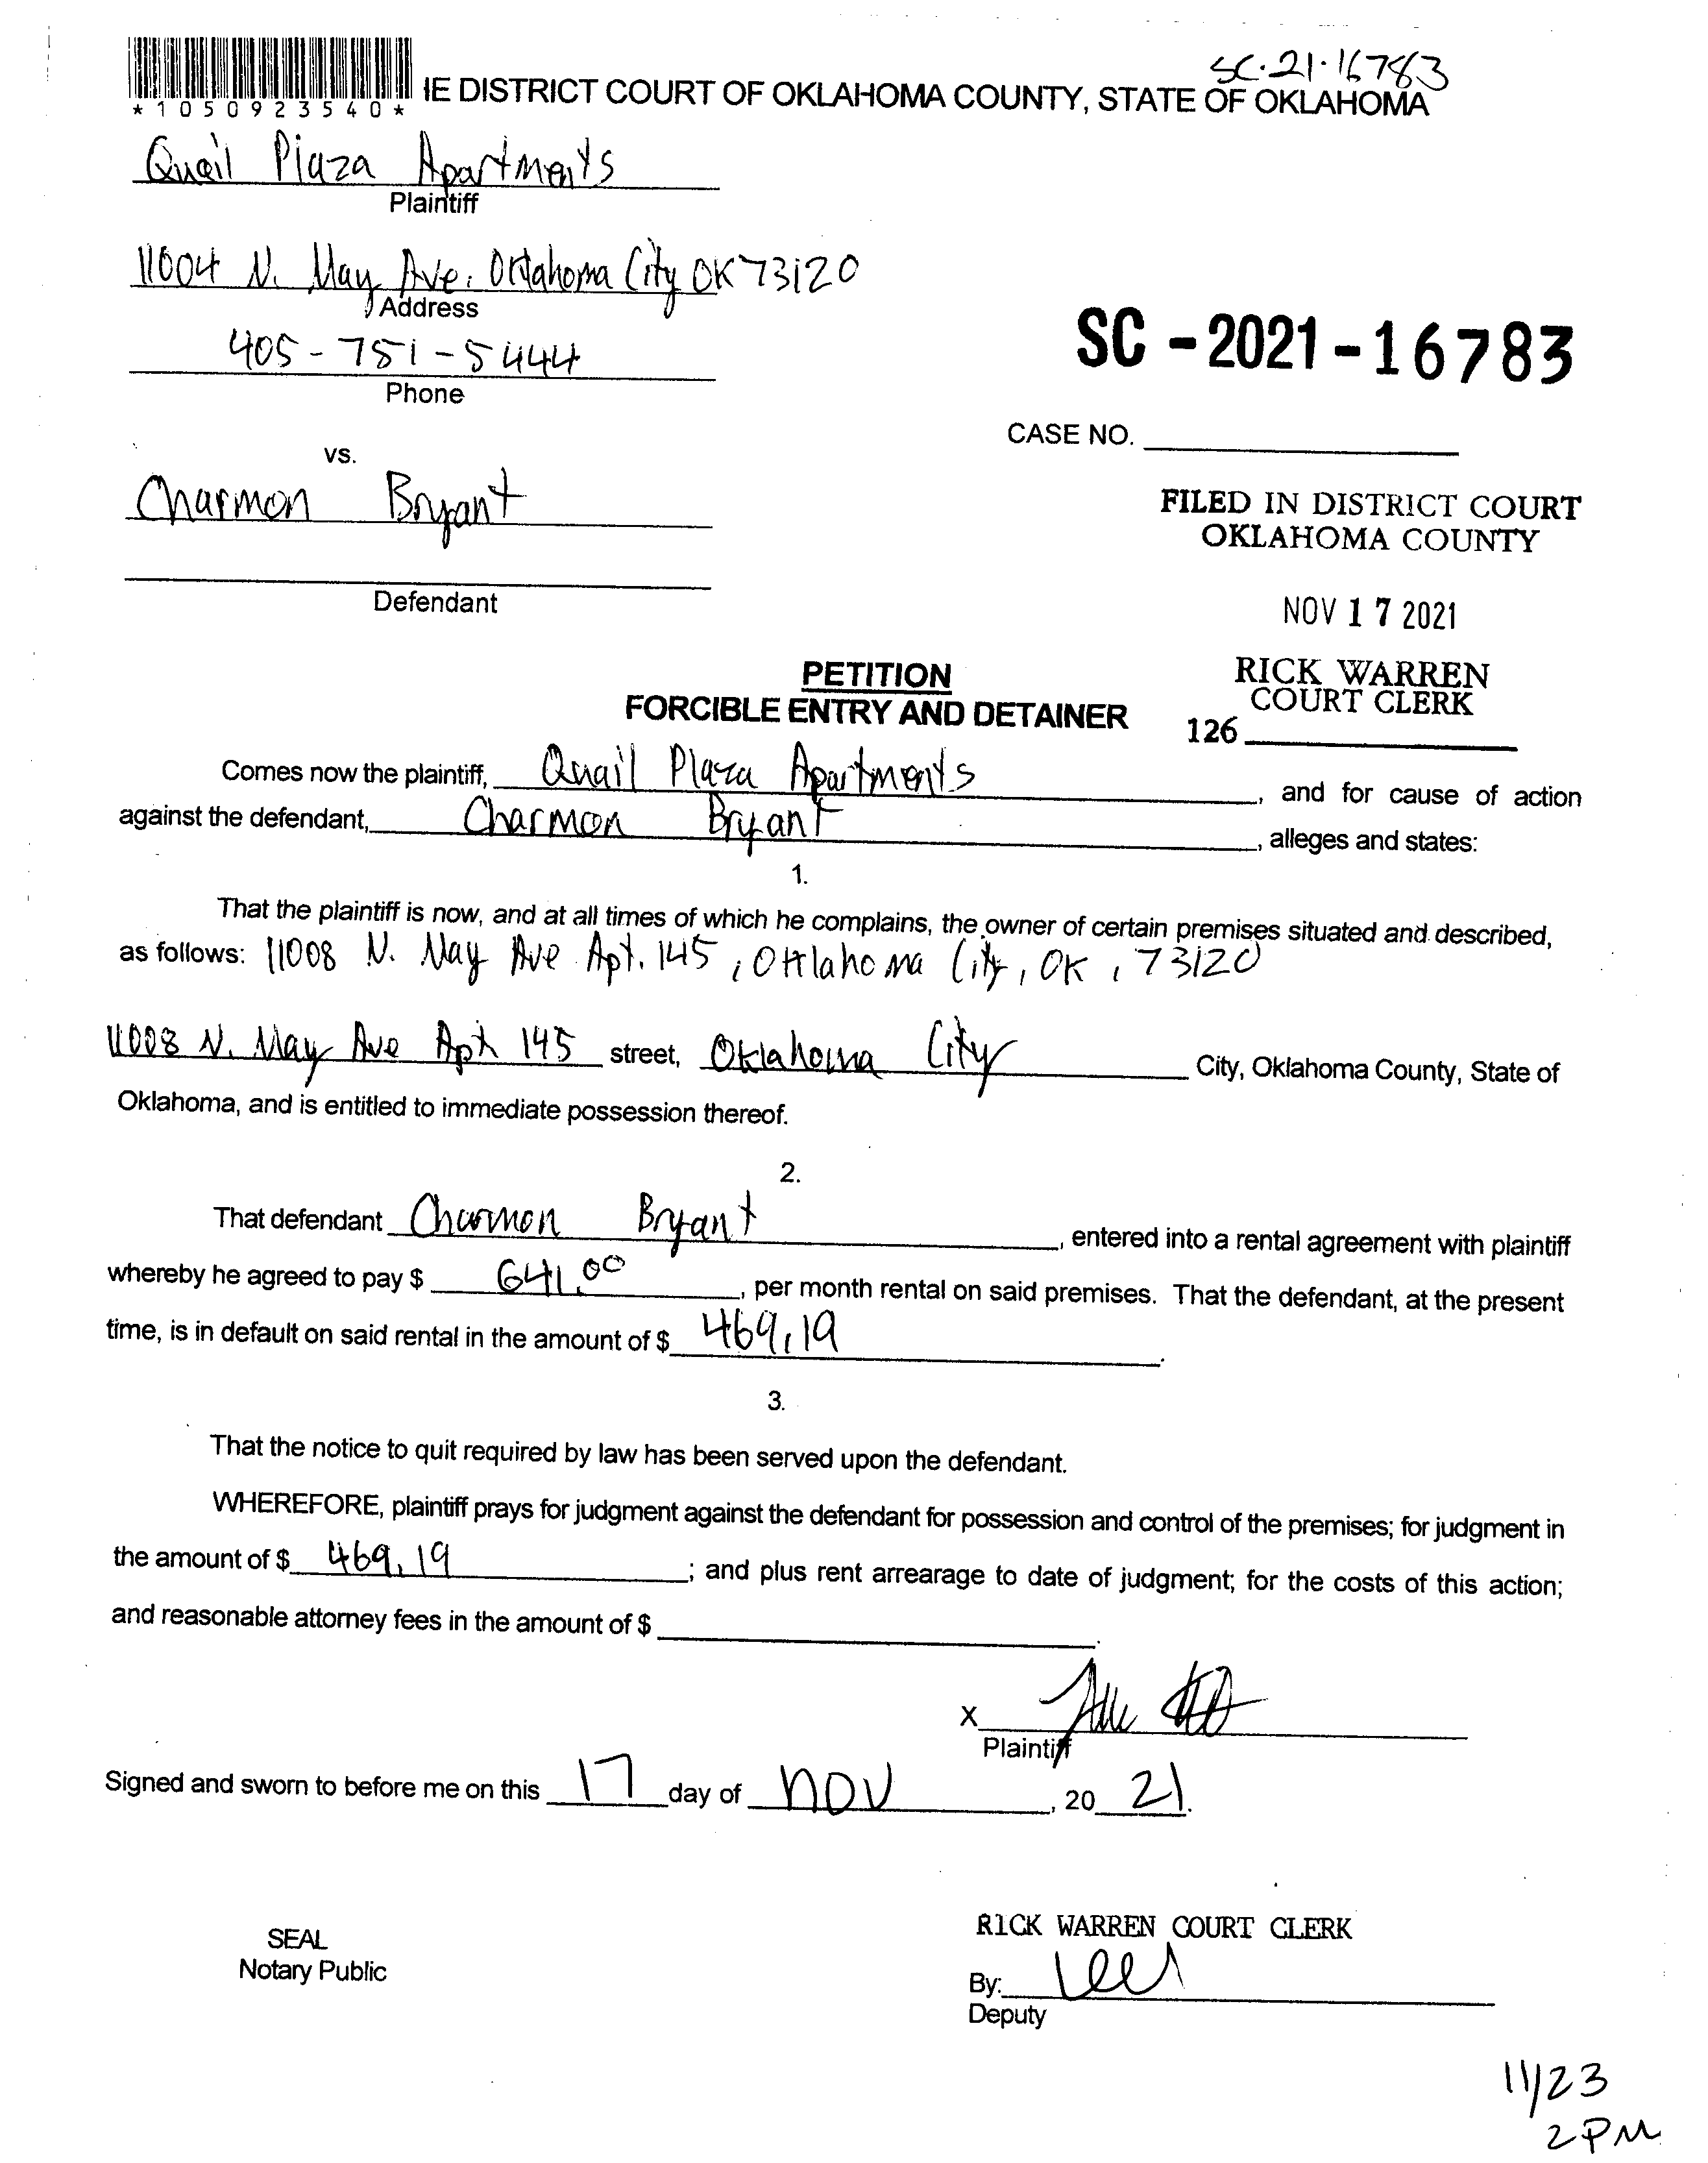 SC-21-16783
*1050923540*
IE DISTRICT COURT OF OKLAHOMA COUNTY, STATE OF OKLAHOMA
Quail Plaza Apartments
Plaintiff
11004 N. May Ave. Oklahoma City OK 73120
Address
405-751-5444
Phone
SC-2021-16783
CASE NO.
vs.
Charmon Bryant
FILED IN DISTRICT COURT
OKLAHOMA COUNTY
Defendant
NOV 17 2021
PETITION
FORCIBLE ENTRY AND DETAINER
RICK WARREN
COURT CLERK
126
Comes now the plaintiff, Quail Plaza Apartments, and for cause of action
against the defendant, Charmon Bryant, alleges and states:
1.
That the plaintiff is now, and at all times of which he complains, the owner of certain premises situated and described,
as follows: 11008 N. May Ave Apt. 145, Oklahoma City, OK, 73120
11008 N. May Ave Apt 145 street, Oklahoma City City, Oklahoma County, State of
Oklahoma, and is entitled to immediate possession thereof.
2.
That defendant Charmon Bryant, entered into a rental agreement with plaintiff
whereby he agreed to pay $ 641.00, per month rental on said premises. That the defendant, at the present
time, is in default on said rental in the amount of $ 469.19.
3.
That the notice to quit required by law has been served upon the defendant.
WHEREFORE, plaintiff prays for judgment against the defendant for possession and control of the premises; for judgment in
the amount of $ 469.19; and plus rent arrearage to date of judgment; for the costs of this action;
and reasonable attorney fees in the amount of $ .
X
Plaintiff
Signed and sworn to before me on this 17 day of NOV, 20 21.
SEAL
Notary Public
RICK WARREN COURT CLERK
By:
Deputy
11/23
2 PM